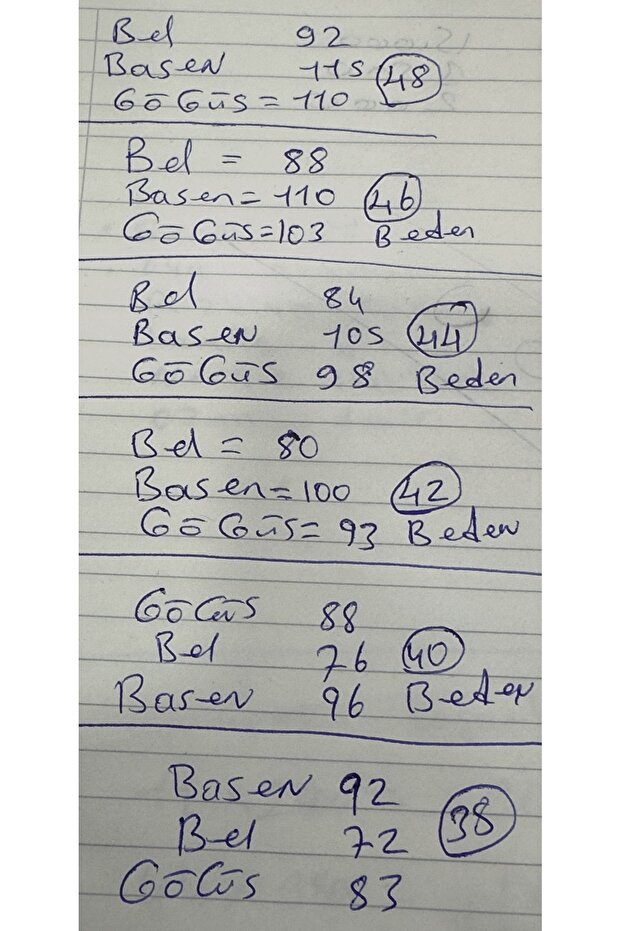 Bel 92
Basen 115 48
Göğüs = 110
Bel = 88
Basen = 110 46
Göğüs = 103 Beden
Bel 84
Basen 105 44
Göğüs 98 Beden
Bel = 80
Basen = 100 42
Göğüs = 93 Beden
Göğüs 88
Bel 76 40
Basen 96 Beden
Basen 92
Bel 72 38
Göğüs 83